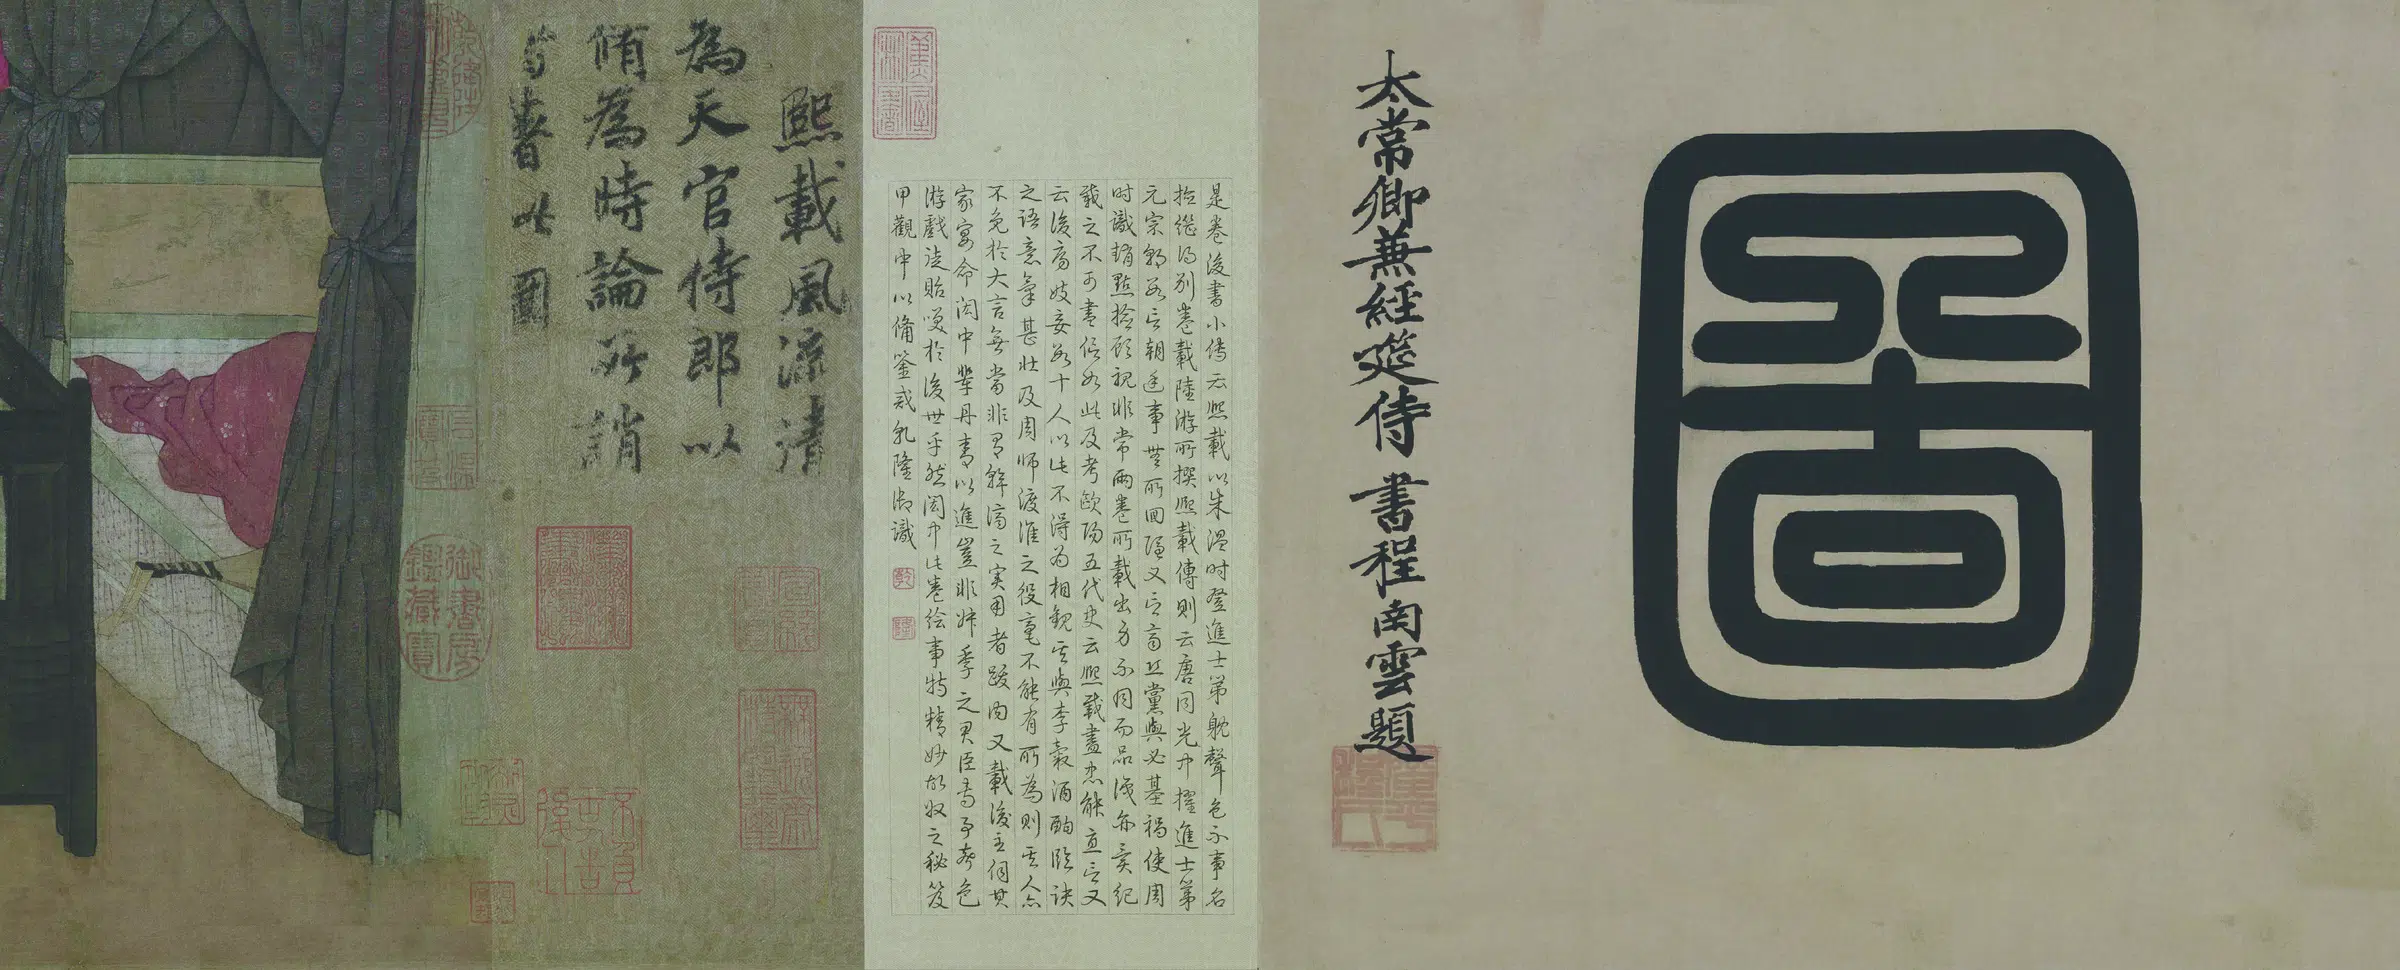 圖
太常卿兼經筵侍書程南雲題
是卷後書小傳云熙載以朱溫時登進士第躭聲色不事名
撿繼得別卷載陸游所撰熙載傳則云唐同光中擢進士第
元宗朝數言朝廷事無所回隱又言齊丘黨與必基禍使周
時識趙點撿顧視非常兩卷所載出身不同而品識亦異紀
載之不可盡信如此及考歐陽五代史云熙載盡忠能直言又
云後房妓妾數十人以此不得為相觀其與李穀酒酣臨訣
之語意氣甚壯及周師渡淮之役毫不能有所為則其人亦
不免於大言無當非有幹濟之實用者跋內又載後主伺其
家宴命閎中輩丹青以進豈非叔季之君臣專事聲色
游戲徒貽笑於後世乎然閎中此卷繪事特精妙故收之秘笈
甲觀中以備鑒戒乾隆御識
乾
隆
熙載風流清
為天官侍郎以
脩為時論所誚
此圖
御書房鑑藏寶